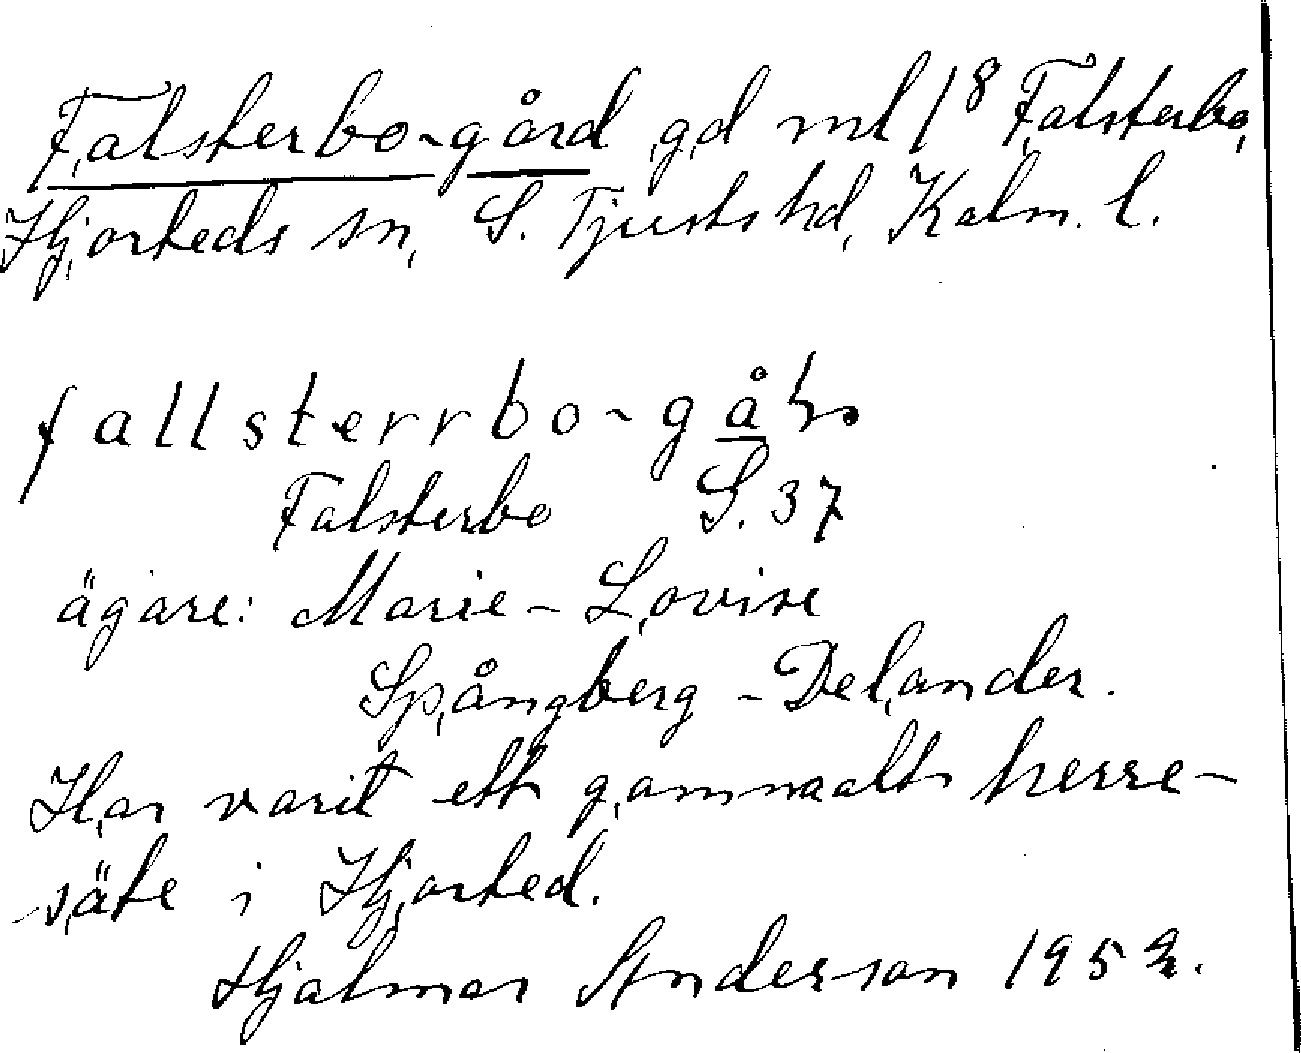 Falsterbo-gård gd ml 1⁸ Falsterbo,
Hjorteds sn, S. Tjusts hd, Kalm. l.
fallsterrbo-gå
Falsterbo S. 37
ägare: Marie-Lovise
Spångberg-Delander.
Har varit ett gammaalt herre-
säte i Hjorted.
Hjalmar Anderson